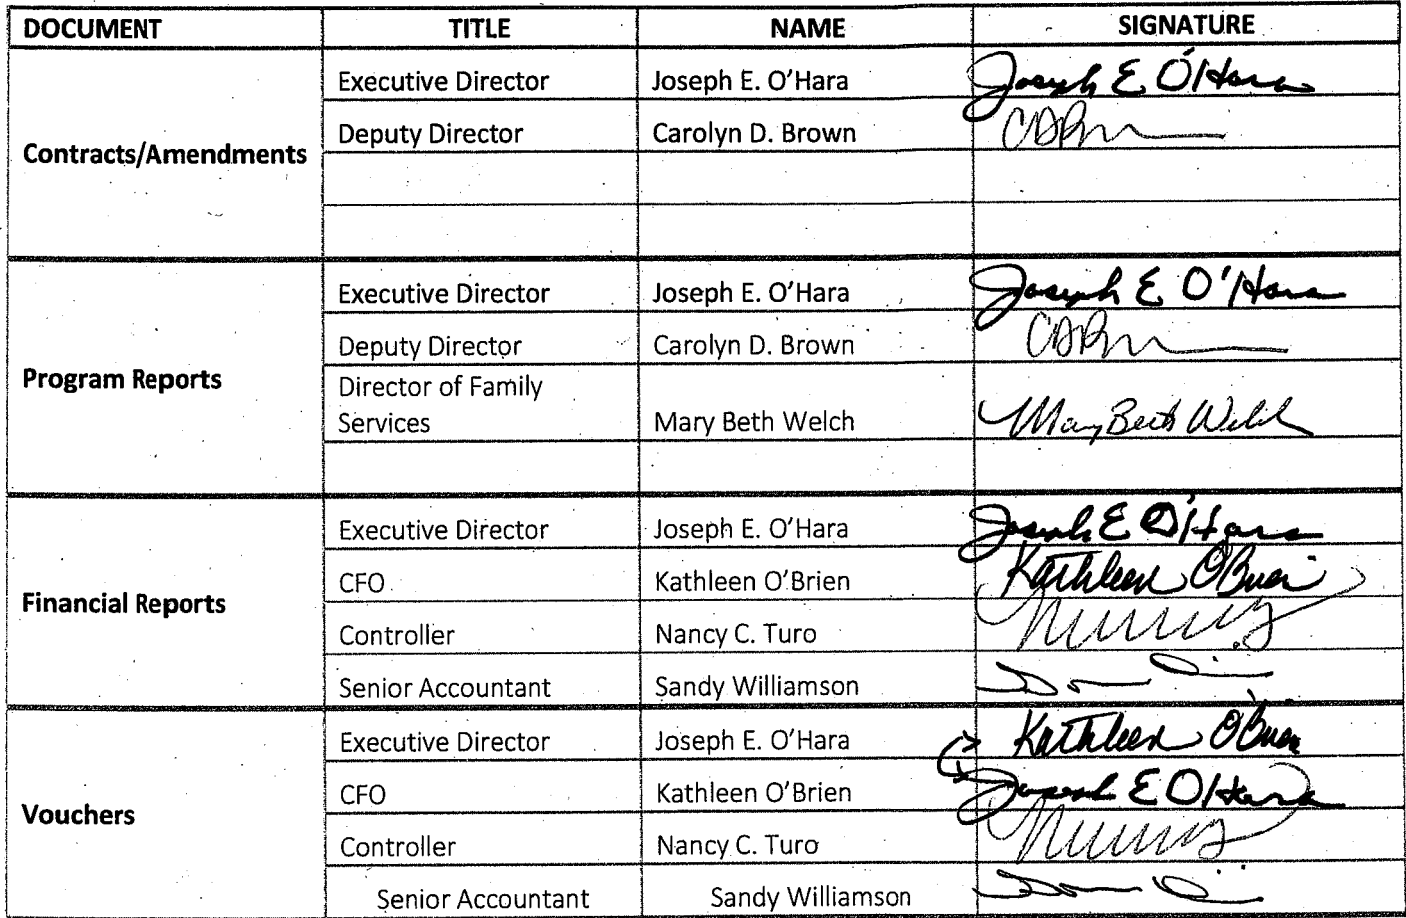 DOCUMENT TITLE NAME SIGNATURE
Contracts/Amendments
Executive Director Joseph E. O'Hara Joseph E O'Hara
Deputy Director Carolyn D. Brown
Program Reports
Executive Director Joseph E. O'Hara Joseph E O'Hara
Deputy Director Carolyn D. Brown
Director of Family
Services Mary Beth Welch Mary Beth Welch
Financial Reports
Executive Director Joseph E. O'Hara Joseph E O'Hara
CFO Kathleen O'Brien Kathleen O'Brien
Controller Nancy C. Turo
Senior Accountant Sandy Williamson
Vouchers
Executive Director Joseph E. O'Hara Kathleen O'Brien
CFO Kathleen O'Brien Joseph E O'Hara
Controller Nancy C. Turo
Senior Accountant Sandy Williamson